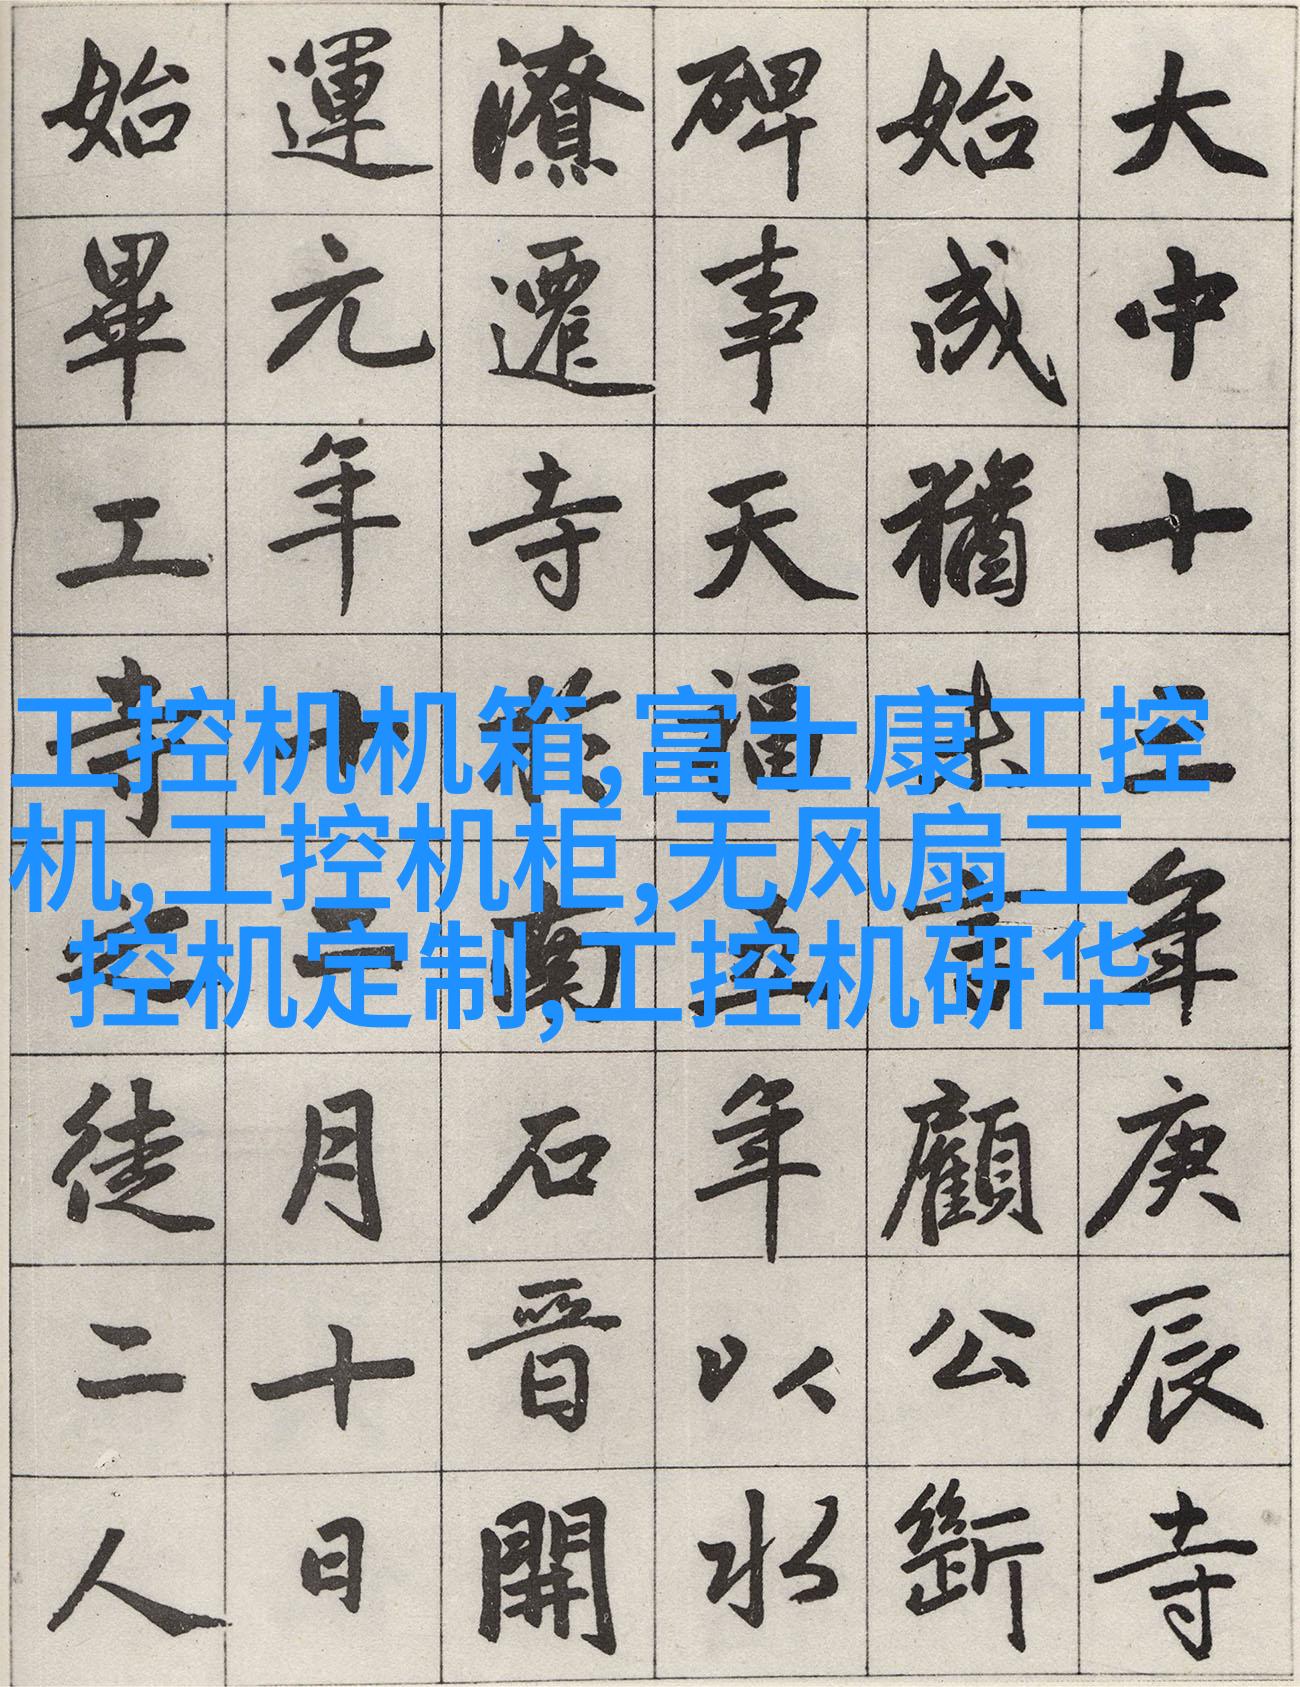 大中十三年庚辰寺
始成猶未言顧公斷
碑事天福五年以水
潦遷寺於南石晉開
運元年十二月十日
始畢工寺之徒二人
工控机机箱,富士康工控
机,工控机柜,无风扇工
控机定制,工控机研华